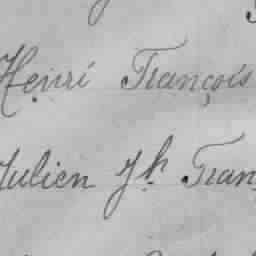 Henri François
Julien Jh. Fran